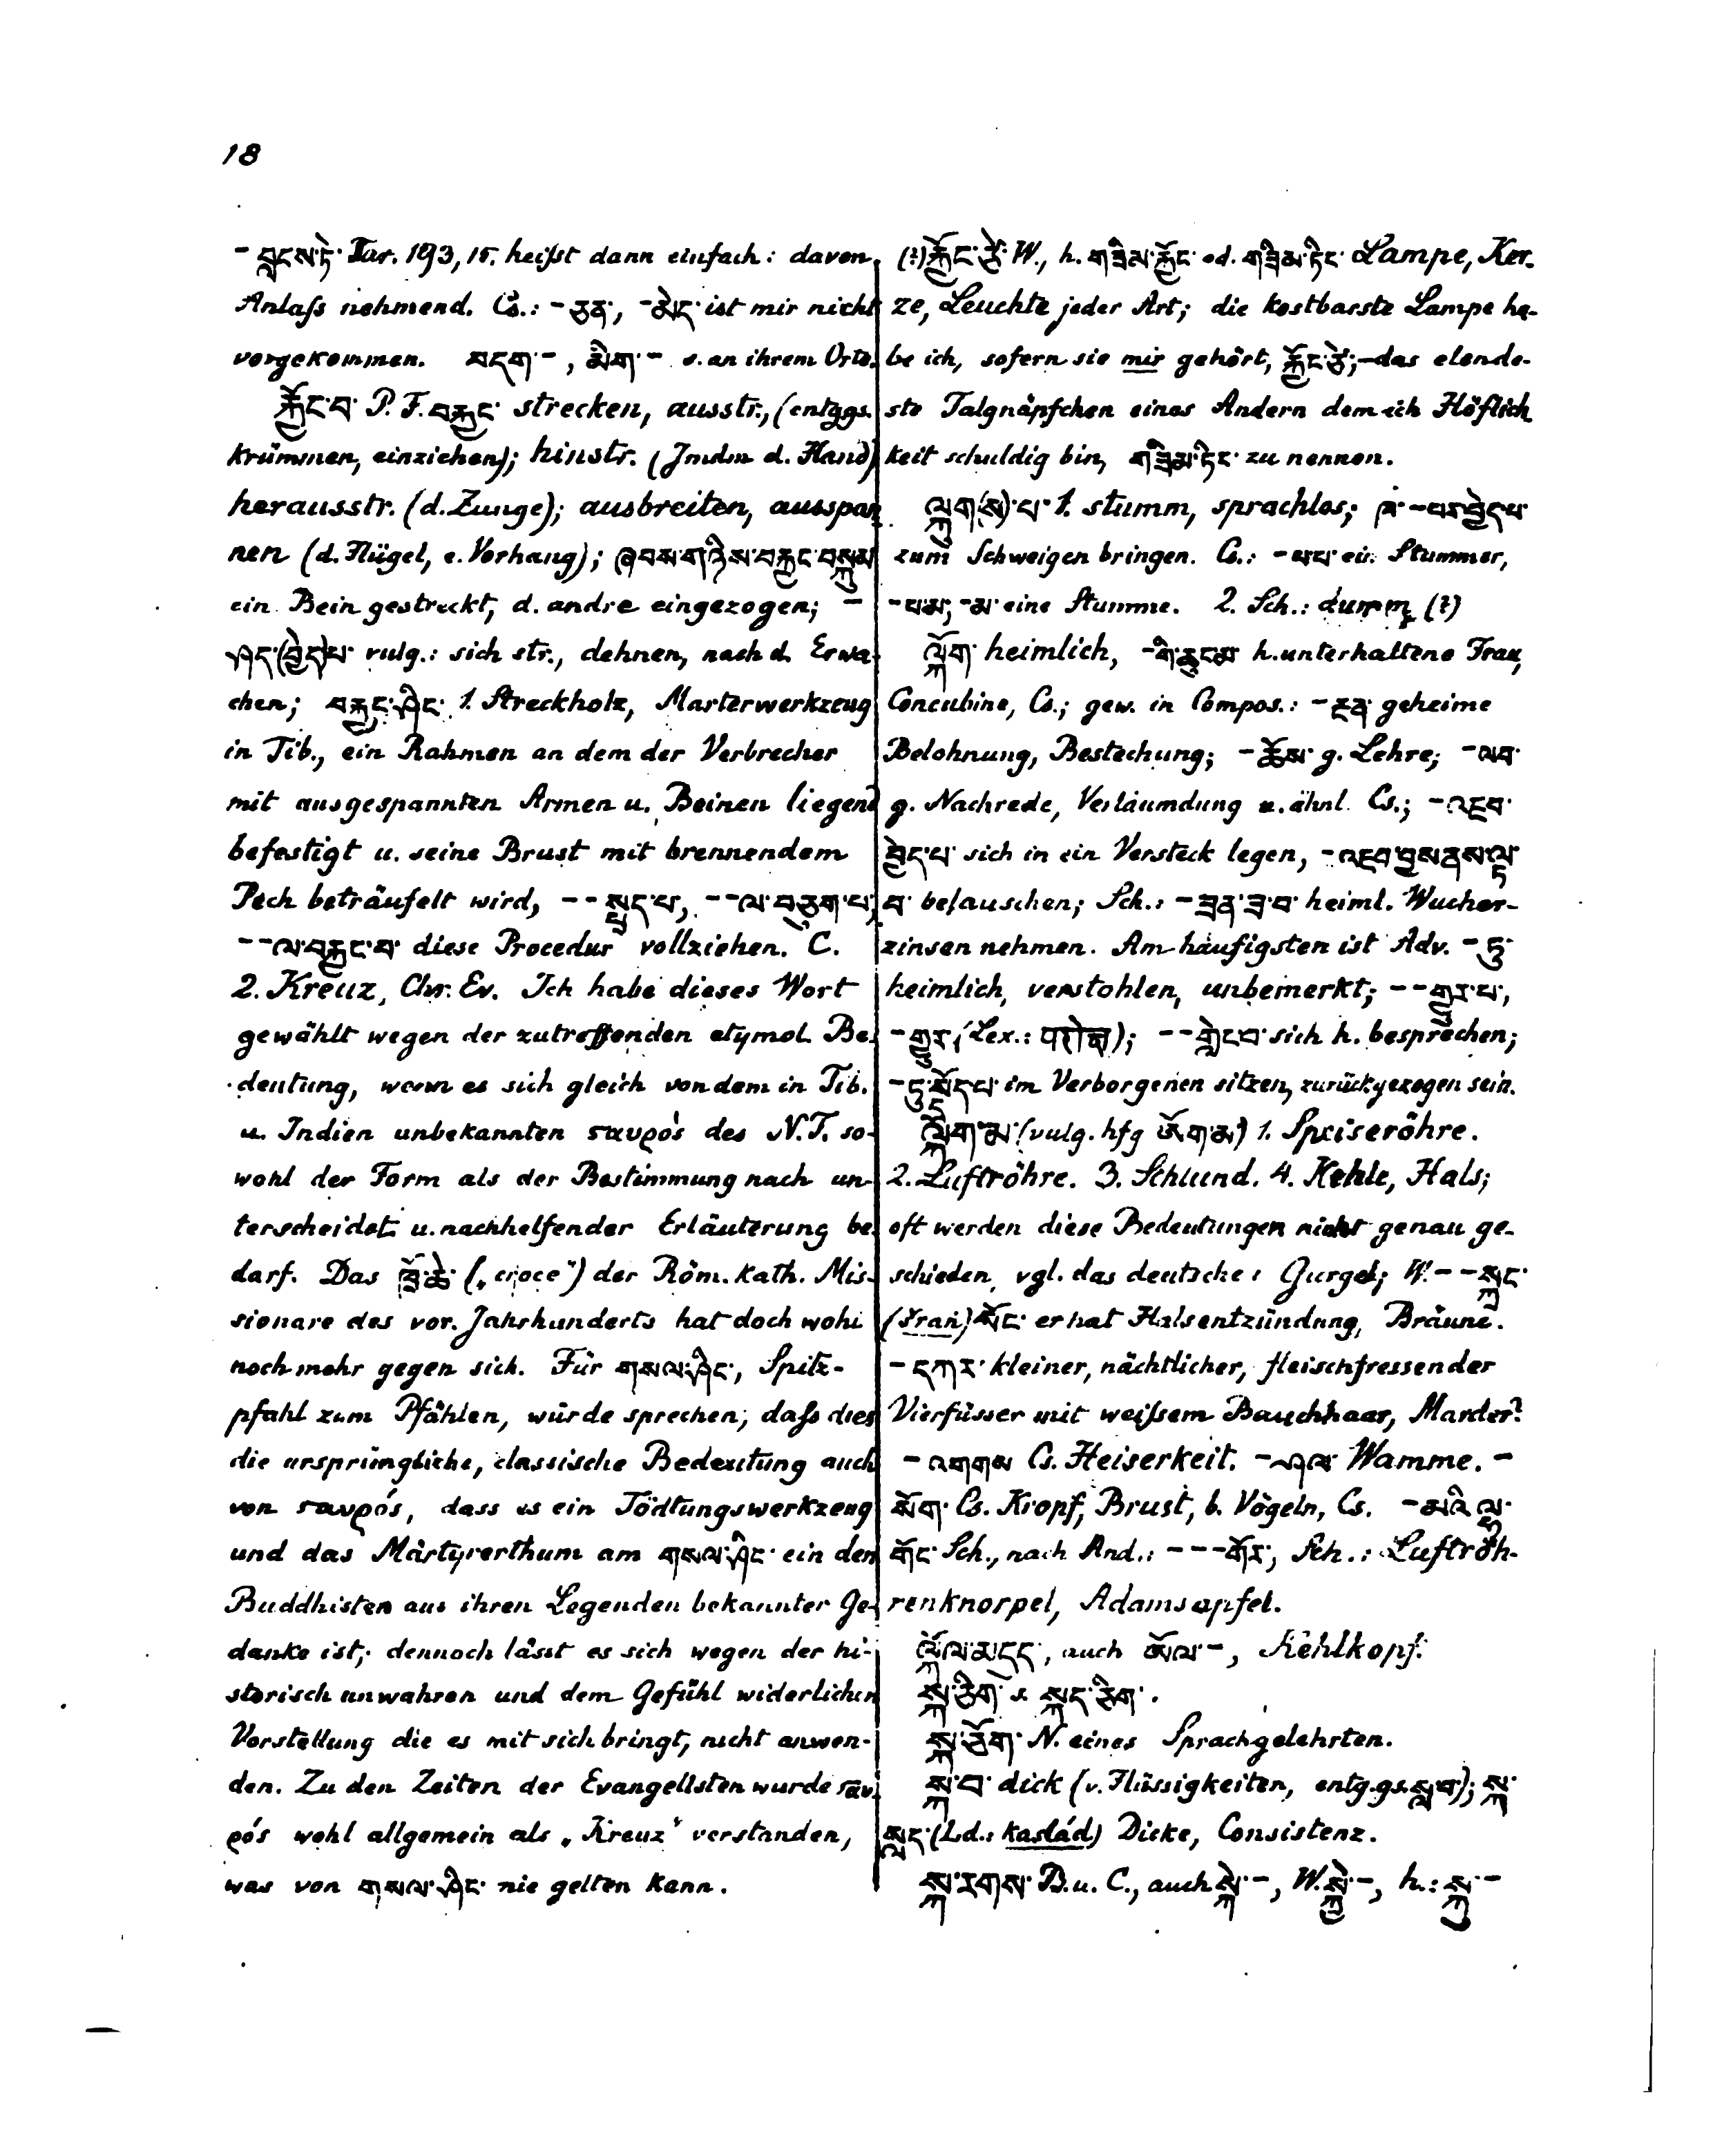 18
- བླངས་ཏེ་ Tar. 193, 15. heißt dann einfach: davon
Anlaß nehmend. Cs.: - ཅན་, - མེད་ ist mir nicht
vorgekommen. བདག་ -, མིག་ - s. an ihrem Orte.
རྐྱོང་བ་ P. F. བརྐྱང་ strecken, ausstr., (entggs.
krümmen, einziehen); hinstr. (Jmdm d. Hand)
herausstr. (d. Zunge); ausbreiten, ausspan
nen (d. Flügel, e. Vorhang); ཞབས་གཉིས་བརྐྱང་བསྐུམ
ein Bein gestreckt, d. andre eingezogen; -
ཤད་(བྱེད)པ་ vulg.: sich str., dehnen, nach d. Erwa-
chen; བརྐྱང་ཤིང་ 1. Streckholz, Marterwerkzeug
in Tib., ein Rahmen an dem der Verbrecher
mit ausgespannten Armen u. Beinen liegend
befestigt u. seine Brust mit brennendem
Pech beträufelt wird, - - སྤྲད་པ་, - - ལ་བཅུག་པ་,
- - ལ་བརྐྱང་བ་ diese Procedur vollziehen. C.
2. Kreuz, Chr. Ev. Ich habe dieses Wort
gewählt wegen der zutreffenden etymol. Be-
deutung, wenn es sich gleich von dem in Tib.
u. Indien unbekannten ϛαυρός des N.T. so-
wohl der Form als der Bestimmung nach un-
terscheidet u. nachhelfender Erläuterung be-
darf. Das ཀྲོ་ཆེ་ („croce") der Röm. kath. Mis-
sionare des vor. Jahrhunderts hat doch wohl
noch mehr gegen sich. Für གསལ་ཤིང་, Spitz-
pfahl zum Pfählen, würde sprechen, daß dies
die ursprüngliche, classische Bedeutung auch
von ϛαυρός, dass es ein Tödtungswerkzeug
und das Märtyrerthum am གསལ་ཤིང་ ein den
Buddhisten aus ihren Legenden bekannter Ge-
danke ist; dennoch lässt es sich wegen der hi-
storisch unwahren und dem Gefühl widerlichen
Vorstellung die es mit sich bringt, nicht anwen-
den. Zu den Zeiten der Evangelisten wurde ϛαυ-
ρός wohl allgemein als „Kreuz" verstanden,
was von གསལ་ཤིང་ nie gelten kann.
(?) རྐྱོང་ཙེ་ W., h. གཟིམ་རྐྱོང་ od. གཟིམ་ཏིང་ Lampe, Ker-
ze, Leuchte jeder Art; die kostbarste Lampe ha-
be ich, sofern sie mir gehört, རྐྱོང་ཙེ་; - das elende-
ste Talgnäpfchen eines Andern dem ich Höflich
keit schuldig bin, གཟིམ་ཏིང་ zu nennen.
ལྐུག(ས)་པ་ 1. stumm, sprachlos; ཁ་ - པར་བྱེད་པ་
zum Schweigen bringen. Cs.: - པ་པ་ ein Stummer,
- པ་མ་, - མ་ eine Stumme. 2. Sch.: dumm (?)
ལྐོག་ heimlich, - གི་ཆུང་མ་ h. unterhaltene Frau,
Concubine, Cs.; gew. in Compos.: - རྔན་ geheime
Belohnung, Bestechung; - ཆོས་ g. Lehre; - ལབ་
g. Nachrede, Verläumdung u. ähnl. Cs.; - འཇབ་
བྱེད་པ་ sich in ein Versteck legen, - འཇབ་བྱས་ནས་ལྟ་
བ་ belauschen; Sch.: - ཟན་ཟ་བ་ heiml. Wucher-
zinsen nehmen. Am häufigsten ist Adv. - ཏུ་
heimlich, verstohlen, unbemerkt; - - གྱུར་པ་,
- གྱུར་ (Lex.: परोक्ष); - - གླེང་བ་ sich h. besprechen;
- ཏུ་སྡོད་པ་ im Verborgenen sitzen, zurückgezogen sein.
ལྐོག་མ་ (vulg. hfg ཨོག་མ་) 1. Speiseröhre.
2. Luftröhre. 3. Schlund. 4. Kehle, Hals;
oft werden diese Bedeutungen nicht genau ge-
schieden, vgl. das deutsche: Gurgel; W. - - སྐྲང་
(šraṅ) སོང་ er hat Halsentzündung, Bräune.
- དཀར་ kleiner, nächtlicher, fleischfressender
Vierfüsser mit weißem Bauchhaar, Marder?
- འགགས Cs. Heiserkeit. - ཤལ་ Wamme. -
སོག་ Cs. Kropf, Brust, b. Vögeln, Cs. - མའི་ལྷ་
གོང་ Sch., nach And.: - - - གོར་, Sch.: Luftröh-
renknorpel, Adamsapfel.
ལྐོལ་མདུད་, auch ཨོལ་ -, Kehlkopf.
སྐ་ཅིག་ s. སྐད་ཅིག་.
སྐ་ཅོག་ N. eines Sprachgelehrten.
སྐ་བ་ dick (v. Flüssigkeiten, entg.gs. སླ་བ་); སྐ་
སླད་ (Ld.: kaslád) Dicke, Consistenz.
སྐ་རགས་ B. u. C., auch སྐེ་ -, W. སྐྱེ་ -, h.: སྐུ་ -